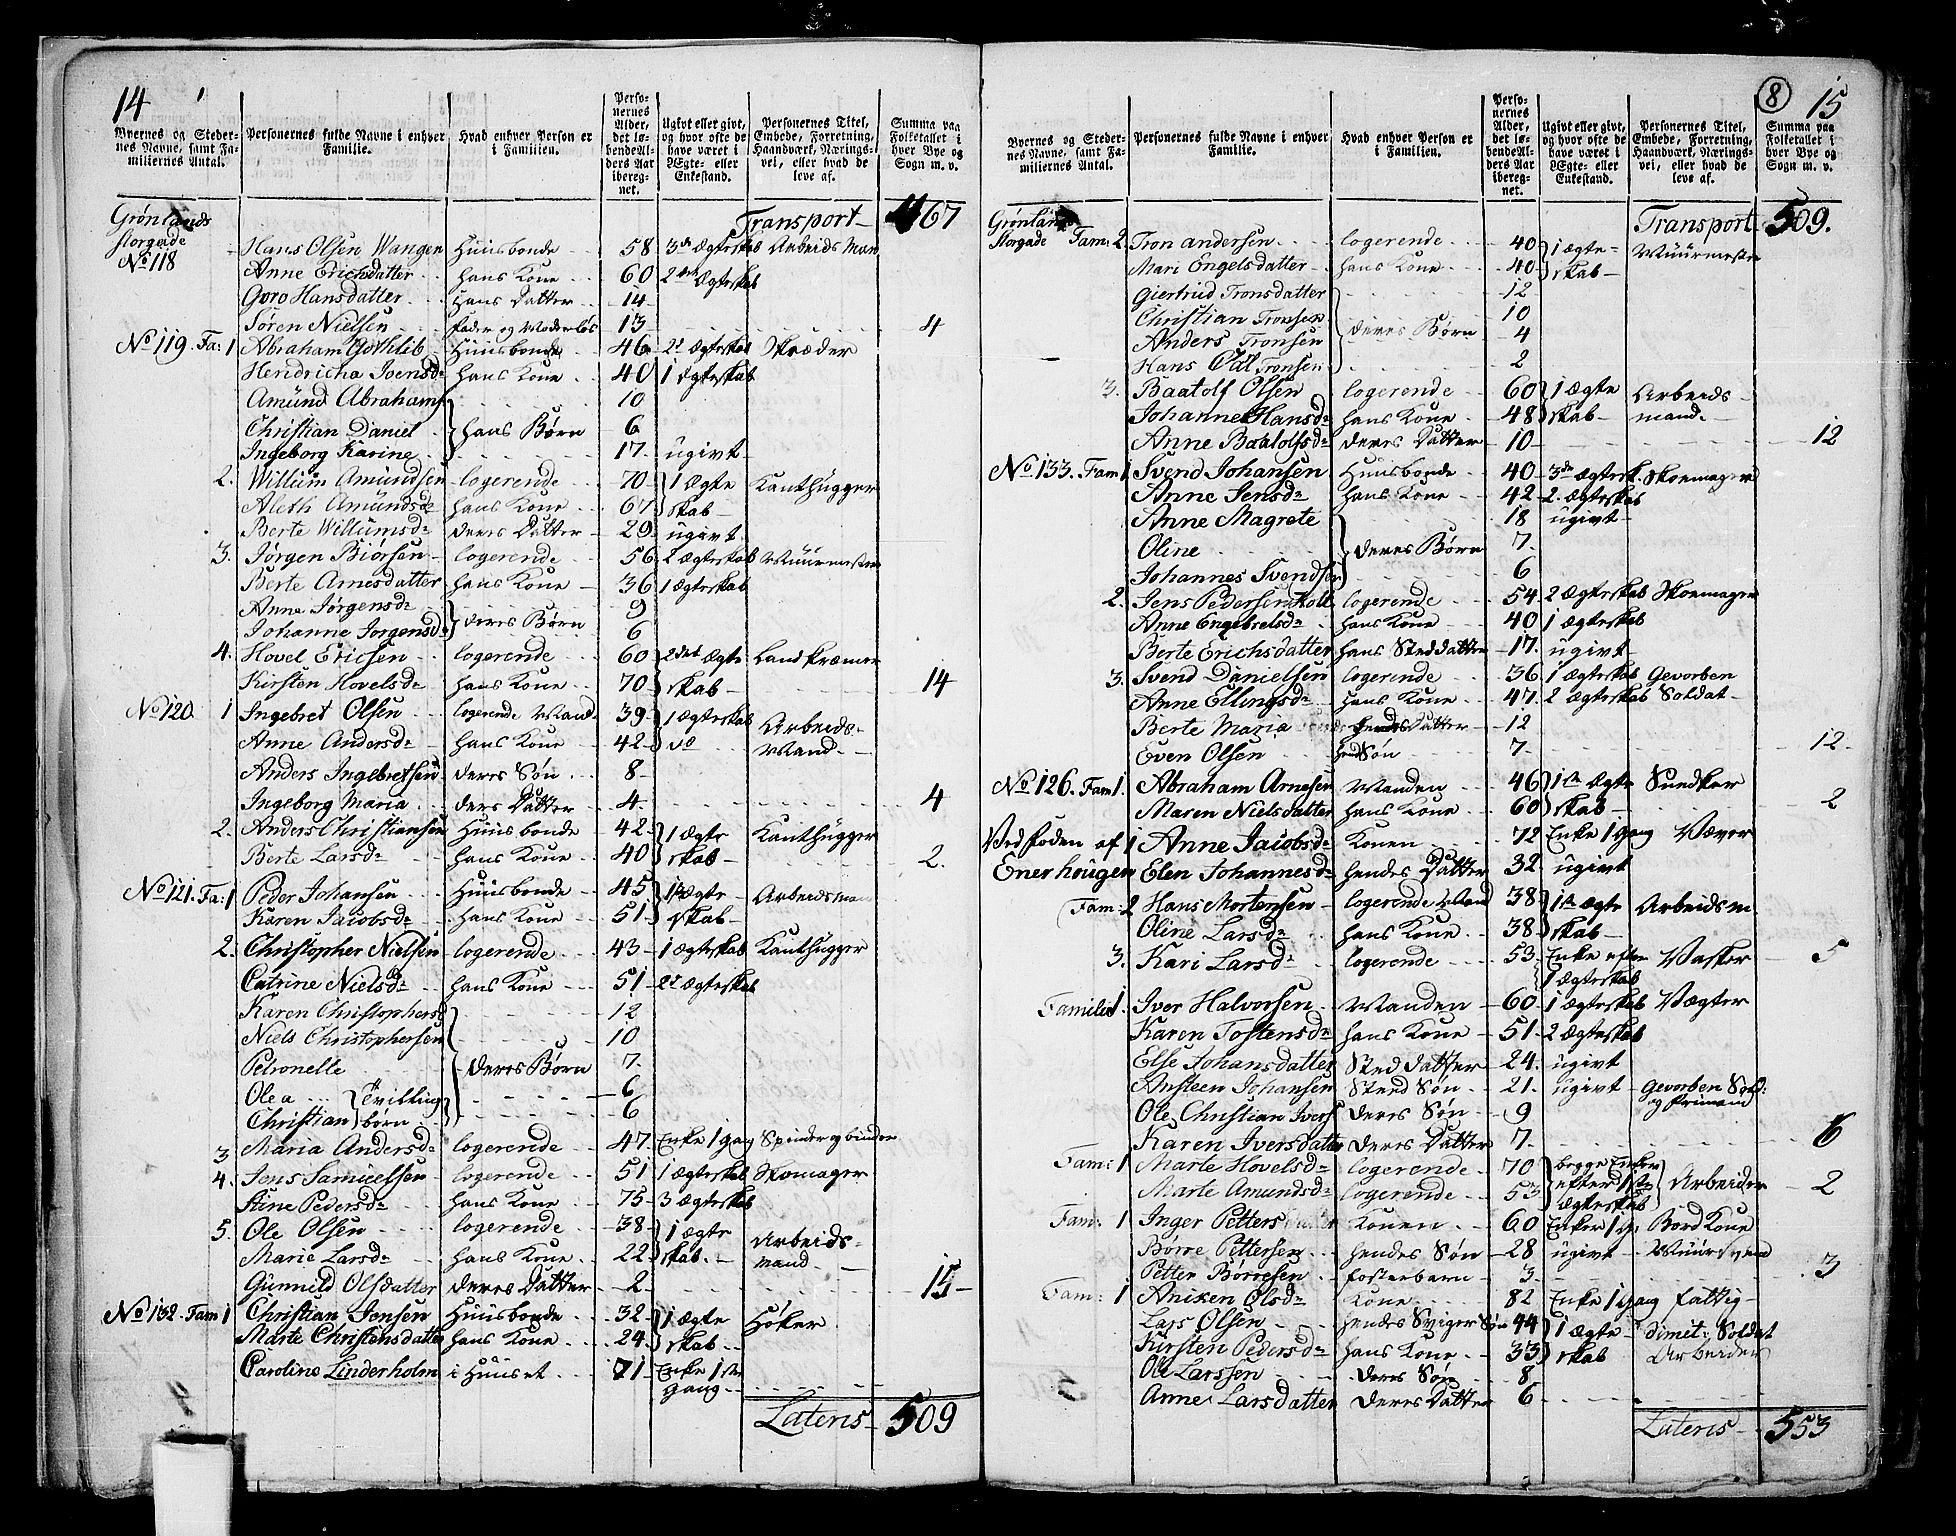 14
Byernes og Stedernes Navne, samt Familiernes Antal.
Personernes fulde Navne i enhver Familie.
Hvad enhver Person er i Familien.
Personernes Alder, det løbende Alders Aar iberegnet.
Ugivt eller givt, og hvor ofte de have været i Ægte- eller Enkestand.
Personernes Titel, Embede, Forretning, Haandværk, Næringsvei, eller hvad de leve af.
Summa paa Folketallet i hver Bye og Sogn m. v.
Grønlands Transport 467
Storgade Hans Olsen Wangen Huusbonde 58 3de Ægteskab Arbeids Man
No 118 Anne Erichsdatter hans Kone 60 2det Ægteskab
Goro Hansdatter hans Datter 14
Søren Nielsen fader og Moderløs 13 4
No 119. Fa: 1 Abraham Gothlib Huusbonde 46 2d Ægteskab Skræder
Hendricha Joensd: hans Kone 40 1 Ægteskab
Amund Abrahams 10
Christian Daniel hans Børn 6
Ingeborg Karine 17 ugivt
2. Willum Amundsen logerende 70 1 Ægte Kanthugger
Aleth Amundsd: hans Kone 67 skab
Berte Willumsd: deres Datter 29 ugivt
3. Jørgen Biörsen logerende 56 2 Ægteskab Muurmester
Berte Arnesdatter hans Kone 36 1 Ægteskab
Anne Jørgensd: 9
Johanne Jørgensd: deres Børn 6
4. Hovel Ericsen logerende 60 2det Ægte Landkræmer
Kirsten Hovelsd: hans Kone 70 skab 14
No 120 1 Ingebret Olsen logerende Mand 39 1 Ægteskab Arbeids-
Anne Andersd: hans Kone 42 do Mand
Anders Ingebretsen deres Søn 8
Ingeborg Maria deres Datter 4 4
2. Anders Christiansen Huusbonde 42 1 Ægte Kanthugger
Berte Larsd: hans Kone 40 skab 2.
No 121. Fa: 1 Peder Johansen Huusbonde 45 1 Ægte Arbeidsmand
Karen Jacobsd: hans Kone 51 skab
2. Christopher Nielsen logerende 43 1 Ægteskab Kanthugger
Catrine Nielsd: hans Kone 51 2d Ægteskab
Karen Christophersd 12
Niels Christophersen 10
Petronelle deres Børn 7.
Olea Tvilling 6
Christian børn 6
3 Maria Andersd: logerende 47 Enke 1 gang Spinder og binder
4. Jens Samuelsen logerende 51 1 Ægteskab Skomager
Stine Pedersd: hans Kone 75 3 Ægteskab
5. Ole Olsen logerende 38 1 Ægte Arbeids-
Marie Larsd: hans Kone 22 skab mand
Gunnild Olsdatter deres Datter 2 15
No 132. Fam 1 Christian Jensen Huusbonde 32 1 Ægte Höker
Marte Christensdatter hans Kone 24 skab
Caroline Linderholm i Huuset 71 Enke 1ste gang
Lateris 509
8
15
Byernes og Stedernes Navne, samt Familiernes Antal.
Personernes fulde Navne i enhver Familie.
Hvad enhver Person er i Familien.
Personernes Alder, det løbende Alders Aar iberegnet.
Ugivt eller givt, og hvor ofte de have været i Ægte- eller Enkestand.
Personernes Titel, Embede, Forretning, Haandværk, Næringsvei, eller hvad de leve af.
Summa paa Folketallet i hver Bye og Sogn m. v.
Grønlands Transport 509.
Storgade Fam: 2. Tron andersen logerende 40 1 Ægte- Muurmester
Mari Engelsdatter hans Kone 40 skab
Giertrud Tronsdatter 12
Christian Tronsen 10
Anders Tronsen deres Børn 4
Hans Tronsen 2
3. Baatolf Olsen logerende 60 1 Ægte Arbeids
Johanne Hansd: hans Kone 48 skab mand.
Anne Baatolfsd: deres Datter 10 12
No 133. Fam 1 Svend Johansen Huusbonde 40 3de Ægtesk. Skoemager
Anne Jensd: hans Kone 42 2. Ægteskab
Anne Magrete 18 ugivt
Oline deres Børn 7.
Johannes Svendsen 6
2. Jens Pedersen Holt logerende 54 2 Ægteskab Skoemager
Anne Engebretsd: hans Kone 40 1 Ægteskab
Berte Erichsdatter hans Steddatter 17. ugivt
3. Svend Danielsen logerende 36 1 Ægteskab Gevorben
Anne Ellingsd: hans Kone 47. 2 Ægteskab Soldat
Berte Maria hendes Datter 12
Even Olsen hend Søn 7 12
No 126. Fam 1. Abraham Arnesen Manden 46 1te Ægte Snedker
Maren Nielsdatter hans Kone 60 skab 2
Ved Foden af 1 Anne Jacobsd: Konen 72 Enke 1 gang Væver
Enerhougen Elen Johannesd: hendes Datter 32 ugivt
Fam: 2 Hans Mortensen logerende Mand 38 1te Ægte Arbeidsm.
Oline Larsd: hans Kone 38 skab
3. Kari Larsd: logerende 53 Enke efter 1 Ægteskab Vasker 5
Familie 1. Iver Halvorsen Manden 60 1 Ægteskab Vægter
Karen Tostensd: hans Kone 51 2 Ægteskab
Else Johansdatter Sted Datter 24. ugivt
Ansteen Johansen Sted Søn 21. ugivt Gevorben Sold: og frimand
Ole Christian Ivers deres Søn 9
Karen Iversdatter deres Datter 7. 6
Fam: 1 Marte Hovelsd: logerende 70 begge Enker Arbeider 2
Marte Amundsd: logerende 53 efter 1ste Ægteskab
Fam: 1 Inger Pettersdatter Konen 60 Enke 1 g. Bord Kone
Børre Pettersen hendes Søn 28 ugivt Muursvend
Petter Børresen fosterbarn 3 3
Fam: 1 Aniken Olsd: Kone 82 Enke 1 gang fattig
Lars Olsen hendes Sviger Søn 44 1 Ægte dimit: Soldat
Kirsten Pedersd: hans Kone 33 skab Arbeider
Ole Larssen deres Søn 8
Anne Larsdatter deres Datter 6
Lateris 553